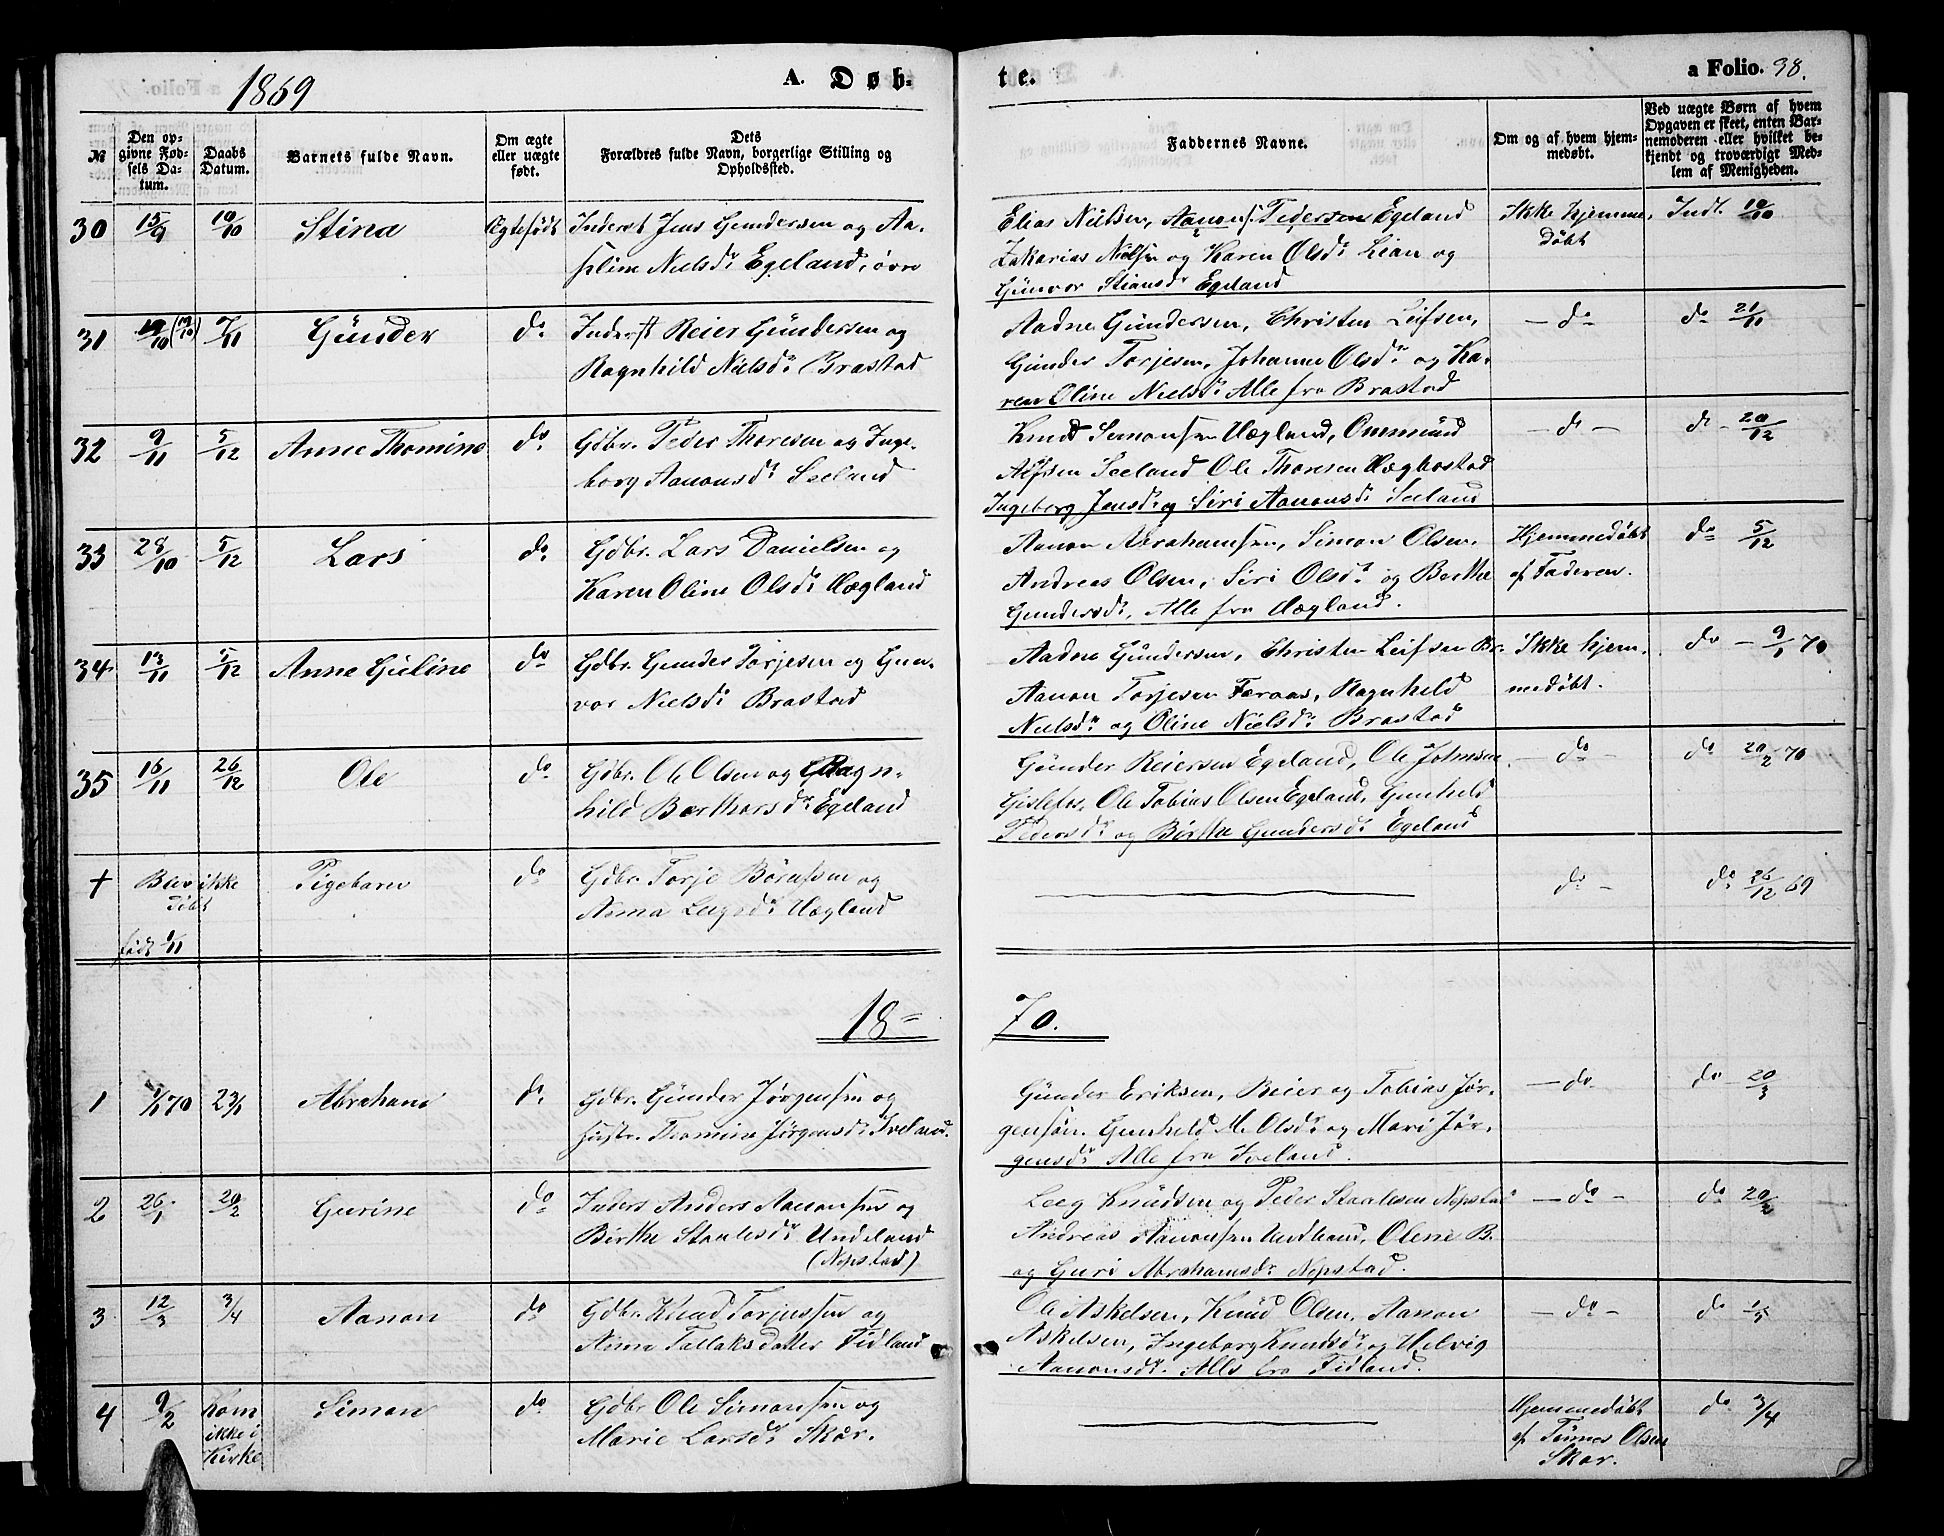 1869
A. Døb-
te.
a Folio. 38.
№
Den op-
givne Fød-
sels Da-
tum.
Daabs
Datum.
Barnets fulde Navn.
Om ægte
eller uægte
født.
Dets
Forældres fulde Navn, borgerlige Stilling og
Opholdssted.
Faddernes Navne.
Om og af hvem hjem-
medøbt.
Ved uægte Børn af hvem
Opgaven er skeet, enten Bar-
nemoderen eller hvilket be-
kjendt og troværdigt Med-
lem af Menigheden.
30 15/9 10/10 Stina Ægtefødt Inderst Jens Gundersen og Aa-
sline Nielsdr Egeland, øvre
Elias Nielsen, Aanon Pedersen Egeland
Zakarias Nielsen og Karen Olsdr Lian og
Gunvor Stiansdr Egeland
Ikke hjemme-
døbt
Indl. 10/10
31 7/11 Gunder do Inderst Reier Gundersen og
Ragnhild Nielsdr Brastad
Aadne Gundersen, Christen Leifsen,
Gunder Torjesen, Johanne Olsdr og Ka-
ren Oline Nielsdr Alle fra Brastad
- do -
do 21/11
32 9/11 5/12 Anne Thomine do Gdbr. Peder Thoresen og Inge-
borg Aanonsdr Seeland
Knud Simonsen Uægland, Ommund
Alfsen Seeland Ole Thoresen Hægbostad
Ingeborg Jensdr og Siri Aanonsdr Seeland
- do -
do - 20/12
33 28/10 5/12 Lars do Gdbr. Lars Danielsen og
Karen Oline Olsdr Uægland
Aanon Abrahamsen, Simon Olsen,
Andreas Olsen, Siri Olsdr og Berthe
Gundersdr, Alle fra Uægland.
Hjemmedøbt
af Faderen.
do 5/12
34 13/11 5/12 Anne Guline do Gdbr. Gunder Torjesen og Gun-
vor Nielsdr Brastad
Aadne Gundersen, Christen Leifsen Br.
Aanon Torjesen Faraas, Ragnhild
Nielsdr og Oline Nielsdr Brastad
Ikke hjem-
medøbt.
do - 9/1 70
35 16/11 26/12 Ole do Gdbr. Ole Olsen og Ragn-
hild Berthorsdr Egeland
Gunder Reiersen Egeland, Ole Johnsen
Gislefos, Ole Tobias Olsen Egeland, Gunhild
Pedersdr og Birthe Gundersdr Egeland
- do -
do 20/2 70
+ Blev ikke
døbt
født 1/11
Pigebarn do Gdbr. Torje Børufsen og
Anna Leegsdr Uægland
do -
do 26/12 69
18=
70.
1 /1 70 23/1 Abraham do Gdbr. Gunder Jørgensen og
Hustr. Thomine Jørgensdr Iveland.
Gunder Eriksen, Reier og Tobias Jør-
gensøn. Gunhild M. Olsdr og Mari Jør-
gensdr Alle fra Iveland.
- do
do - 20/3
2 26/1 20/2 Gurine do Inders. Anders Aanonsen og
Birthe Staalesdr Undeland
(Nepstad)
Leeg Knudsen og Peder Staalesen Nepstad
Andreas Aanonsen Undland, Olene B.
og Guri Abrahamsdr Nepstad.
- do -
do 20/2
3 12/3 3/4 Aanon do Gdbr. Knud Torjussen og
Anna Tallaksdatter Fidland
Ole Askelsen, Knud Olsen, Aanon
Askelsen, Ingeborg Knudsdr og Helvig
Aanonsdr. Alle fra Fidland.
- do -
do 1/5
4 9/2 Kom
ikke i
Kirke
Simon do Gdbr Ole Simonsen og
Marie Larsdr Skar.
Hjemmedøbt
af Tønnes Olsen
Skar.
do 3/4